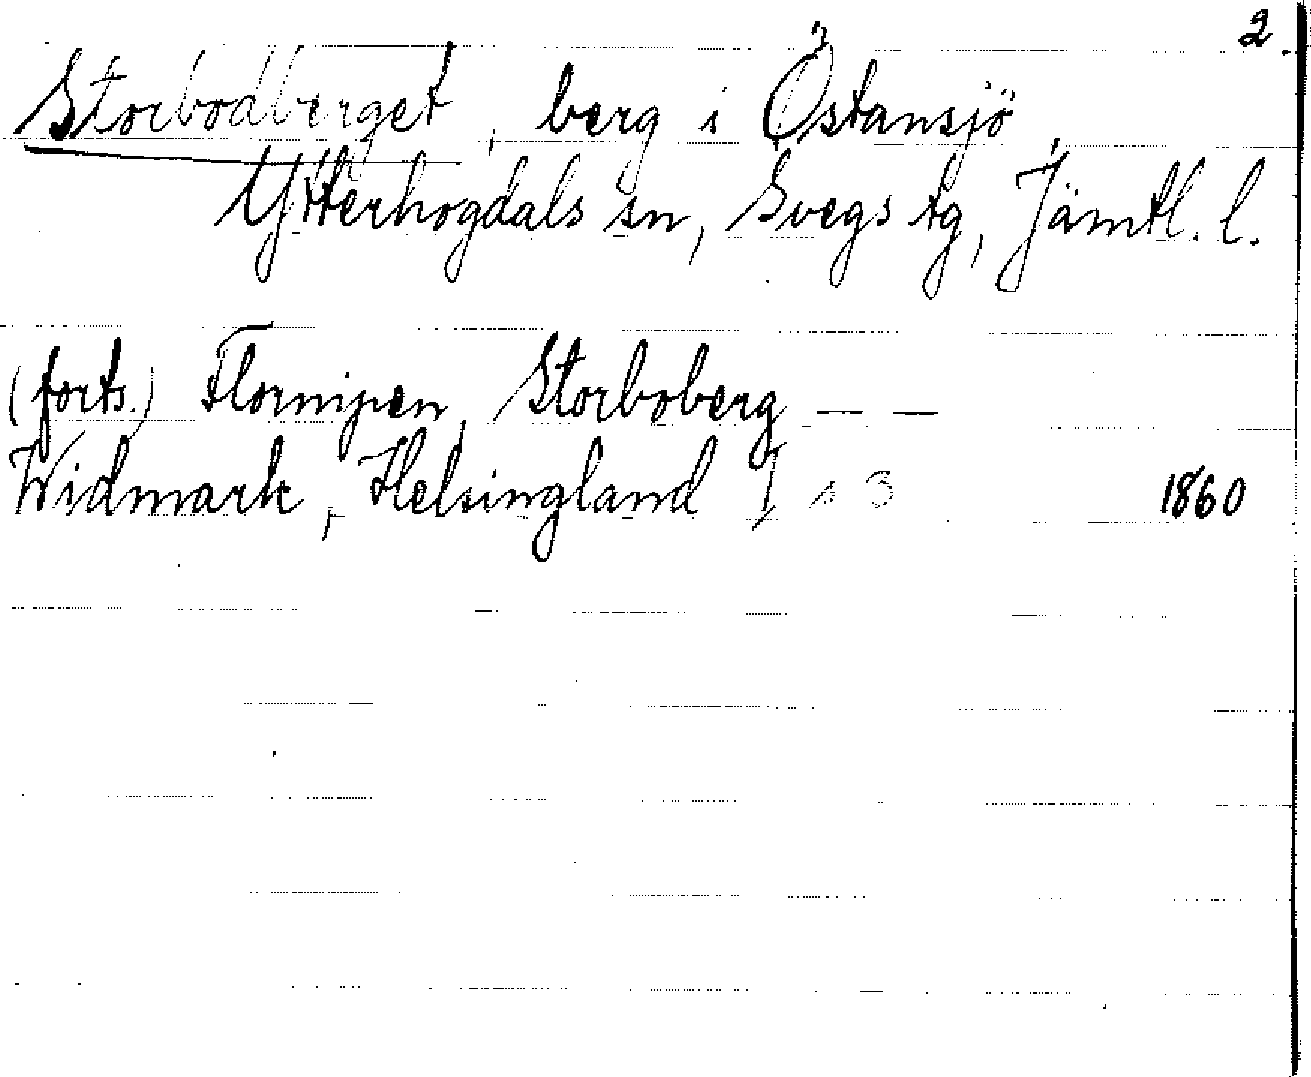 2.
Storbodberget, berg i Östansjö,
Ytterhogdals sn, Svegs tg, Jämtl. l.
(forts.) Flornipen, Storboberg — —
Widmark, Helsingland I s 3 1860